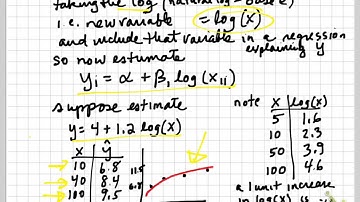 taking the log (natural log - base e)
i.e. new variable = log(x)
and include that variable in a regression
explaining y
so now estimate
yi = α + β1 log(x1i)
suppose estimate
y = 4 + 1.2 log(x)
x ŷ
10 6.8
40 8.4
100 9.5
11.5
6.8
note x log(x)
5 1.6
10 2.3
50 3.9
100 4.6
a 1 unit increase
in log(x) is